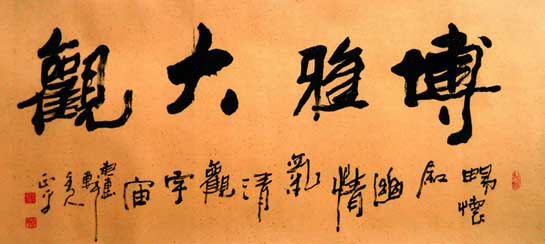 博雅大觀
暢懷叙幽情氣清觀宇宙